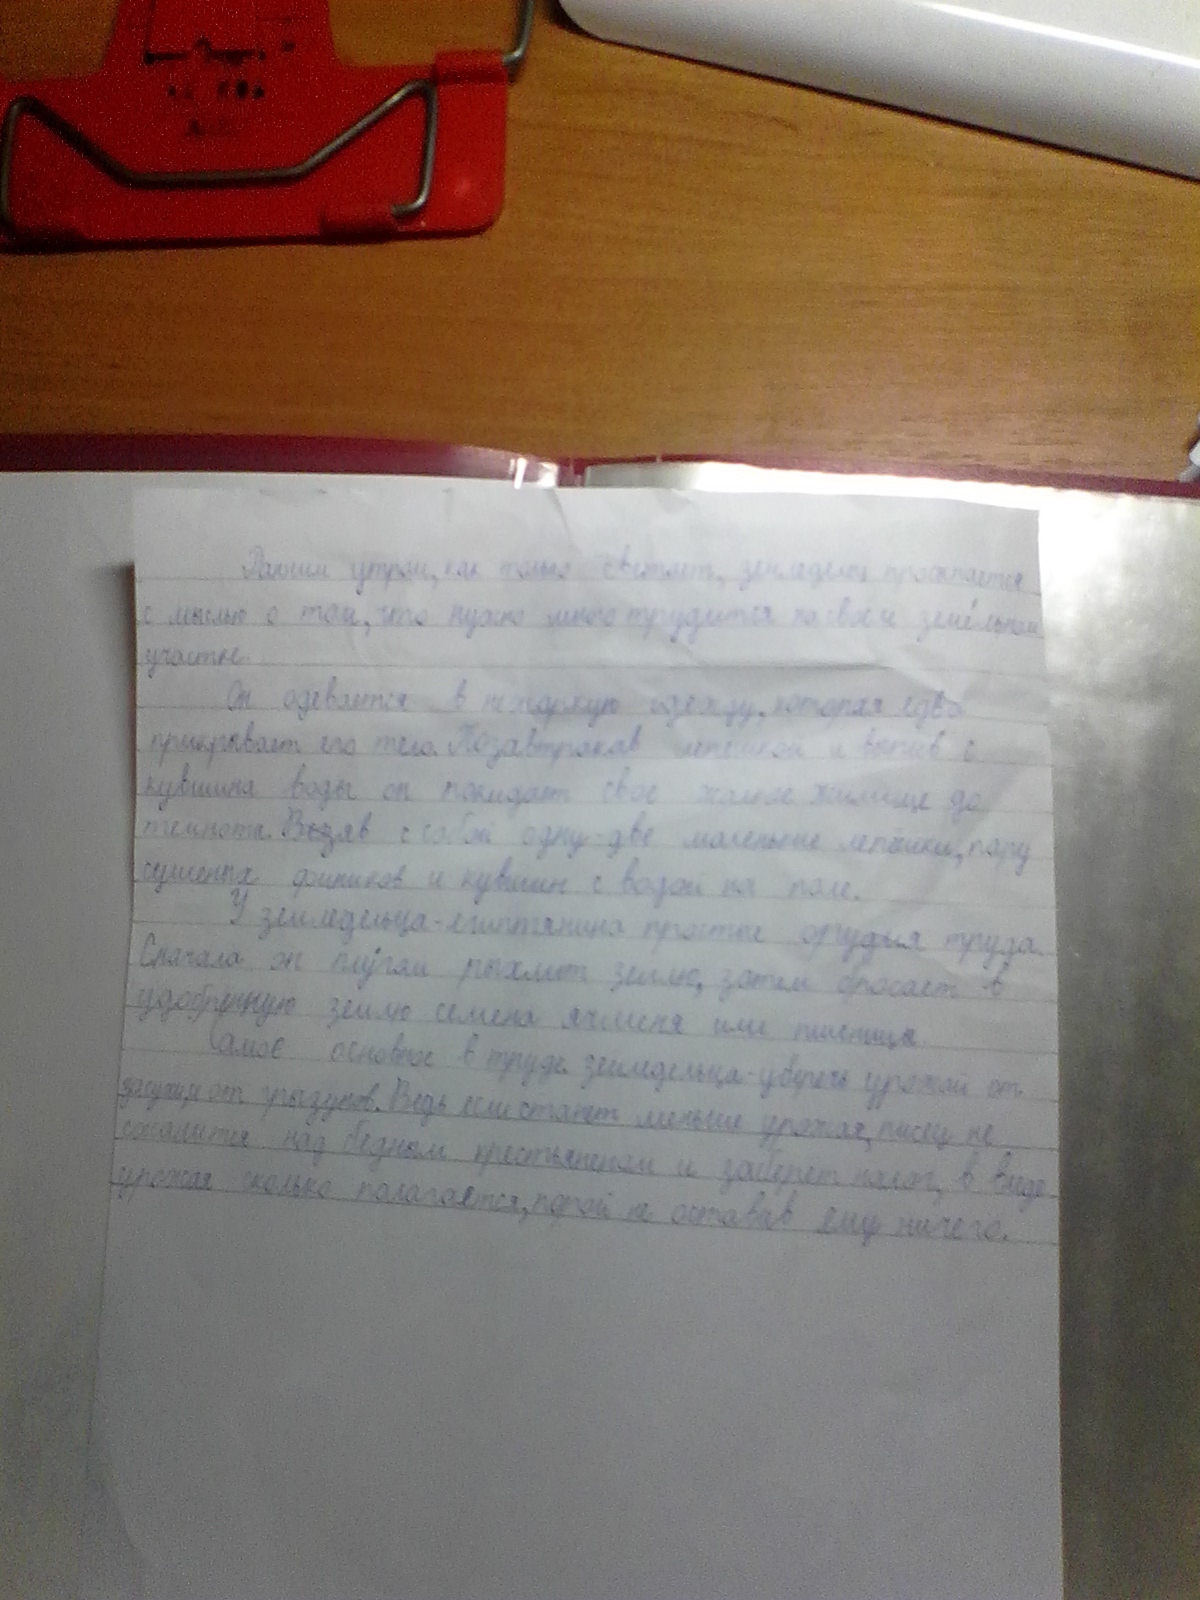 Ранним утром, как только светлеет, земледелец просыпается
с мыслью о том, что нужно много трудится на своем земельном
участке.
Он одевается в нежаркую одежду, которая едва
прикрывает его тело. Позавтракав лепешкой и выпив с
кувшина воды он покидает свое жалкое жилище до
темноты. Взяв с собой одну-две маленькие лепёшки, пару
сушеных фиников и кувшин с водой на поле.
У земледельца-египтянина простые орудия труда.
Сначала он плугам рыхлит землю, затем бросает в
удобренную землю семена ячменя или пшеницы.
Самое основное в труде земледельца-уберечь урожай от
засухи от грызунов. Ведь если станет меньше урожая, писец не
сжалится над бедным крестьянином и заберет налог, в виде
урожая сколько полагается, порой не оставив ему ничего.